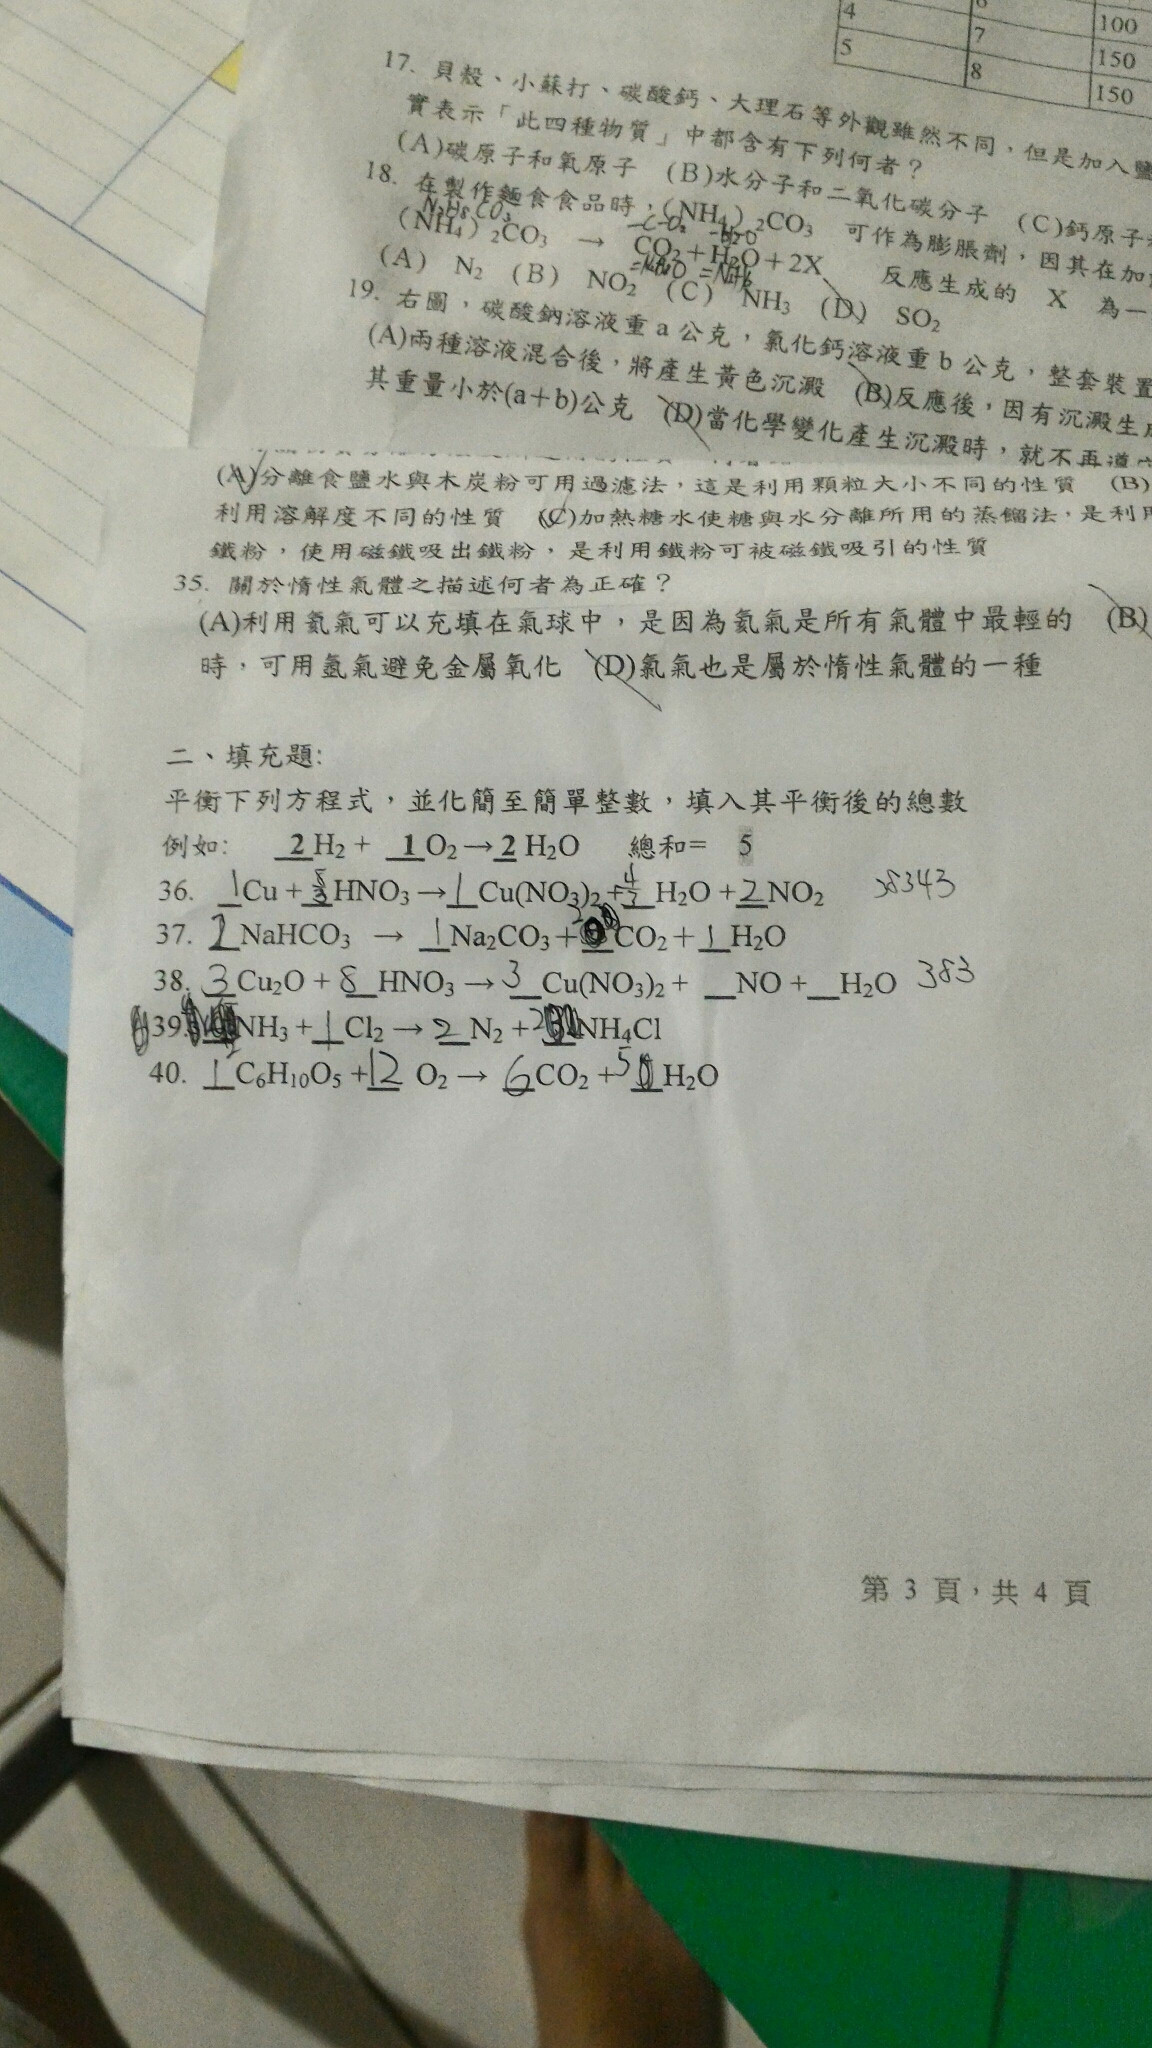 4 6 100
5 7 150
8 150
17. 貝殼、小蘇打、碳酸鈣、大理石等外觀雖然不同，但是加入鹽
實表示「此四種物質」中都含有下列何者？
(A)碳原子和氧原子 (B)水分子和二氧化碳分子 (C)鈣原子
18. 在製作麵食食品時，(NH4)2CO3 可作為膨脹劑，因其在加
N2H8CO3 -C-O2 -H2O
(NH4)2CO3 → CO2＋H2O＋2X 反應生成的 X 為一
(A) N2 (B) NO2 (C) NH3 (D) SO2
19. 右圖，碳酸鈉溶液重 a 公克，氯化鈣溶液重 b 公克，整套裝置
(A)兩種溶液混合後，將產生黃色沉澱 (B)反應後，因有沉澱生
其重量小於(a＋b)公克 (D)當化學變化產生沉澱時，就不再遵
(A)分離食鹽水與木炭粉可用過濾法，這是利用顆粒大小不同的性質 (B)
利用溶解度不同的性質 (C)加熱糖水使糖與水分離所用的蒸餾法，是利用
鐵粉，使用磁鐵吸出鐵粉，是利用鐵粉可被磁鐵吸引的性質
35. 關於惰性氣體之描述何者為正確？
(A)利用氦氣可以充填在氣球中，是因為氦氣是所有氣體中最輕的 (B)
時，可用氬氣避免金屬氧化 (D)氯氣也是屬於惰性氣體的一種
二、填充題:
平衡下列方程式，並化簡至簡單整數，填入其平衡後的總數
例如: 2 H2 + 1 O2→2 H2O 總和= 5
36. 1 Cu + 8 3 HNO3→1 Cu(NO3)2 + 4 H2O + 2 NO2 38343
37. 2 NaHCO3 → 1 Na2CO3＋ 2 CO2＋1 H2O
38. 3 Cu2O + 8 HNO3→ 3 Cu(NO3)2 + _NO +_H2O 383
39. NH3 + 1 Cl2→ 2 N2 + 2 NH4Cl
40. 1 C6H10O5 + 12 O2 → 6 CO2 + 5 H2O
第 3 頁，共 4 頁